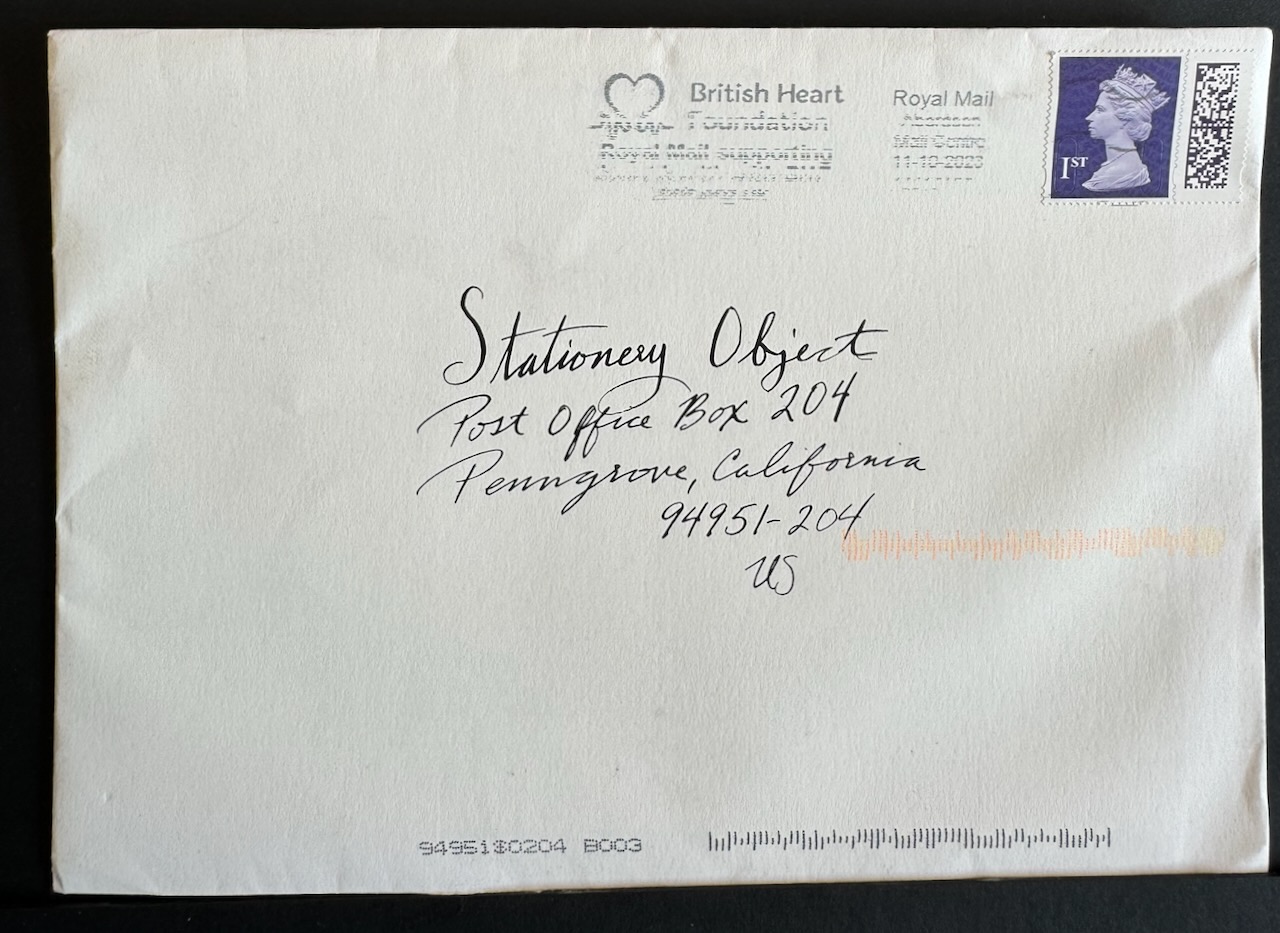 British Heart
Foundation
Royal Mail supporting
Royal Mail
Aberdeen
Mail Centre
11-10-2023
1ST
Stationery Object
Post Office Box 204
Penngrove, California
94951-204
US
94951$0204 B003